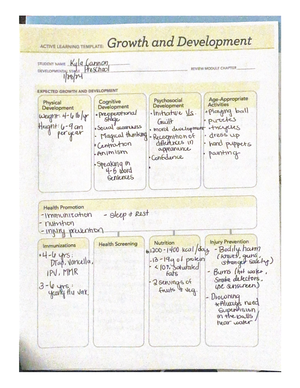 ACTIVE LEARNING TEMPLATE: Growth and Development
STUDENT NAME Kyle Gannon
DEVELOPMENTAL STAGE Preschool
REVIEW MODULE CHAPTER
EXPECTED GROWTH AND DEVELOPMENT
Physical
Development
Height: 
per year
Cognitive
Development
- preoperational
stage
- Social awareness
- Magical thinking
- Centration
- Animism
- Speaking in
4-5 word
sentences
Psychosocial
Development
- Initiative Vs
Guilt
- moral development
- Recognition of
differences in
appearance
- Confidence
Age-Appropriate
Activities
- Playing ball
- puzzles
- tricycles
- dress up
- hand puppets
- painting
Health Promotion
- immunization - sleep & Rest
- nutrition
- injury prevention
Immunizations
4-6 yrs:
DTaP, Varicella,
IPV, MMR
3-6 yrs:
yearly flu
Health Screening
Nutrition
1200-1400 kcal/day
13-19g of protein
< 10% Saturated
fats
servings of
fruits & veg
Injury Prevention
- Bodily harm
- Burns (hot water,
Smoke detectors,
use sunscreen)
- Drowning
near water